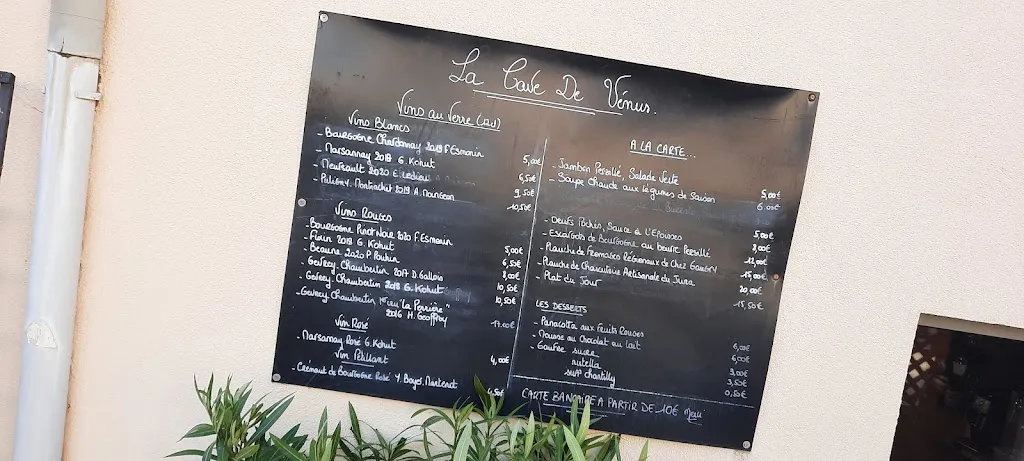 La Cave De Vénus.
Vins au Verre (12cl)
Vins Blancs
- Bourgogne Chardonnay 2019 F. Esmonin 5,00€
- Marsannay 2018 G. Kohut 6,50€
- Meursault 2020 E. 9,50€
- Puligny Montrachet 2019 A. 10,50€
Vins Rouges
- Bourgogne Pinot Noir 2020 F. Esmonin 5,00€
- Fixin 2019 G. Kohut 6,50€
- Beaune 2020 P. 8,00€
- Gevrey Chambertin 2017 D. Gallois 10,50€
- Gevrey Chambertin 2018 G. Kohut 10,50€
- Gevrey Chambertin 1er cru "La Perrière"
2016 H. Geoffroy 17.00€
Vin Rosé
- Marsannay Rosé G. Kohut 4,00€
Vin Pétillant
- Crémant de Bourgogne Rosé Y. Martenot
A LA CARTE...
- Jambon Persillé, Salade Verte 5,00€
- Soupe Chaude aux légumes de Saison 6.00€
- Oeufs Pochés, Sauce à L'Epoisses 5,00€
- Escargots de Bourgogne au beurre Persillé 8,00€
12,00€
- Planche de Fromages Régionaux de Chez 15,00€
- Planche de Charcuterie Artisanale du Jura 20,00€
- Plat du Jour 15,50€
LES DESSERTS
- Panacotta aux Fruits Rouges 6,00€
- Mousse au Chocolat au lait 6,00€
- Gaufre sucre 3,00€
nutella 3,50€
supp chantilly 0,50€
CARTE BANCAIRE A PARTIR DE 10€ Merci